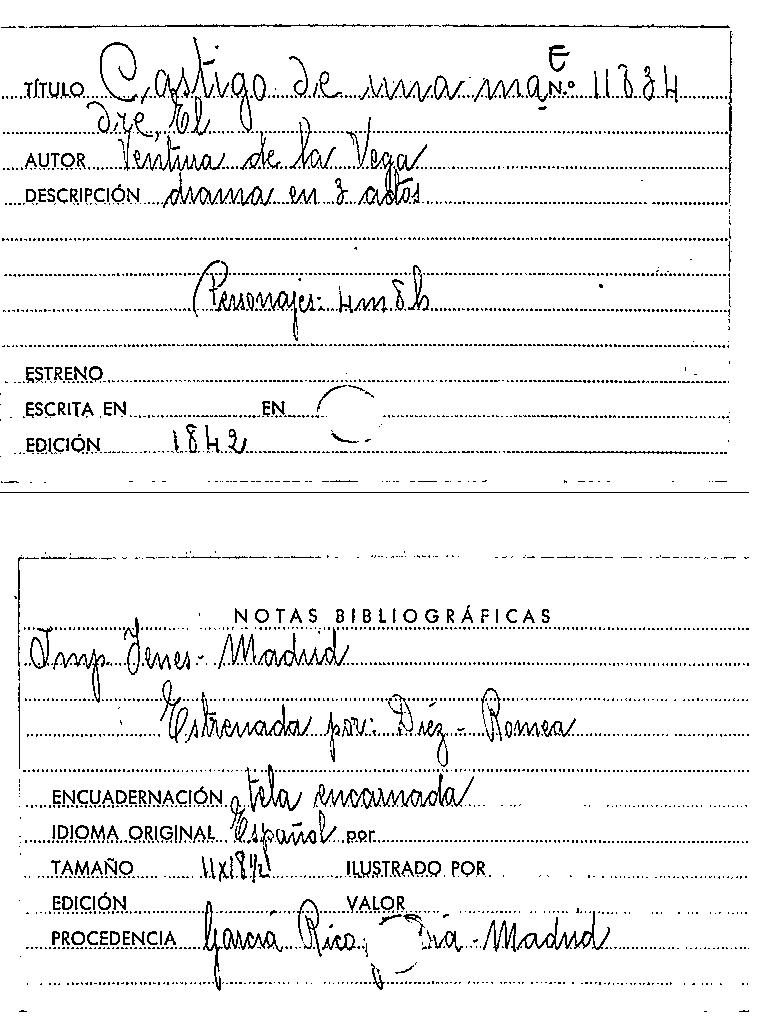 E
TÍTULO Castigo de una ma N.º 11834
dre, El
AUTOR Ventura de la Vega
DESCRIPCIÓN drama en 3 actos
Personajes: 4m 8h
ESTRENO
ESCRITA EN EN
EDICIÓN 1842
NOTAS BIBLIOGRÁFICAS
Imp Yenes - Madrid
Estrenada por: Díez - Romea
ENCUADERNACIÓN tela encarnada
IDIOMA ORIGINAL Español por
TAMAÑO 11x18½ ILUSTRADO POR
EDICIÓN VALOR
PROCEDENCIA García Rico, - Madrid